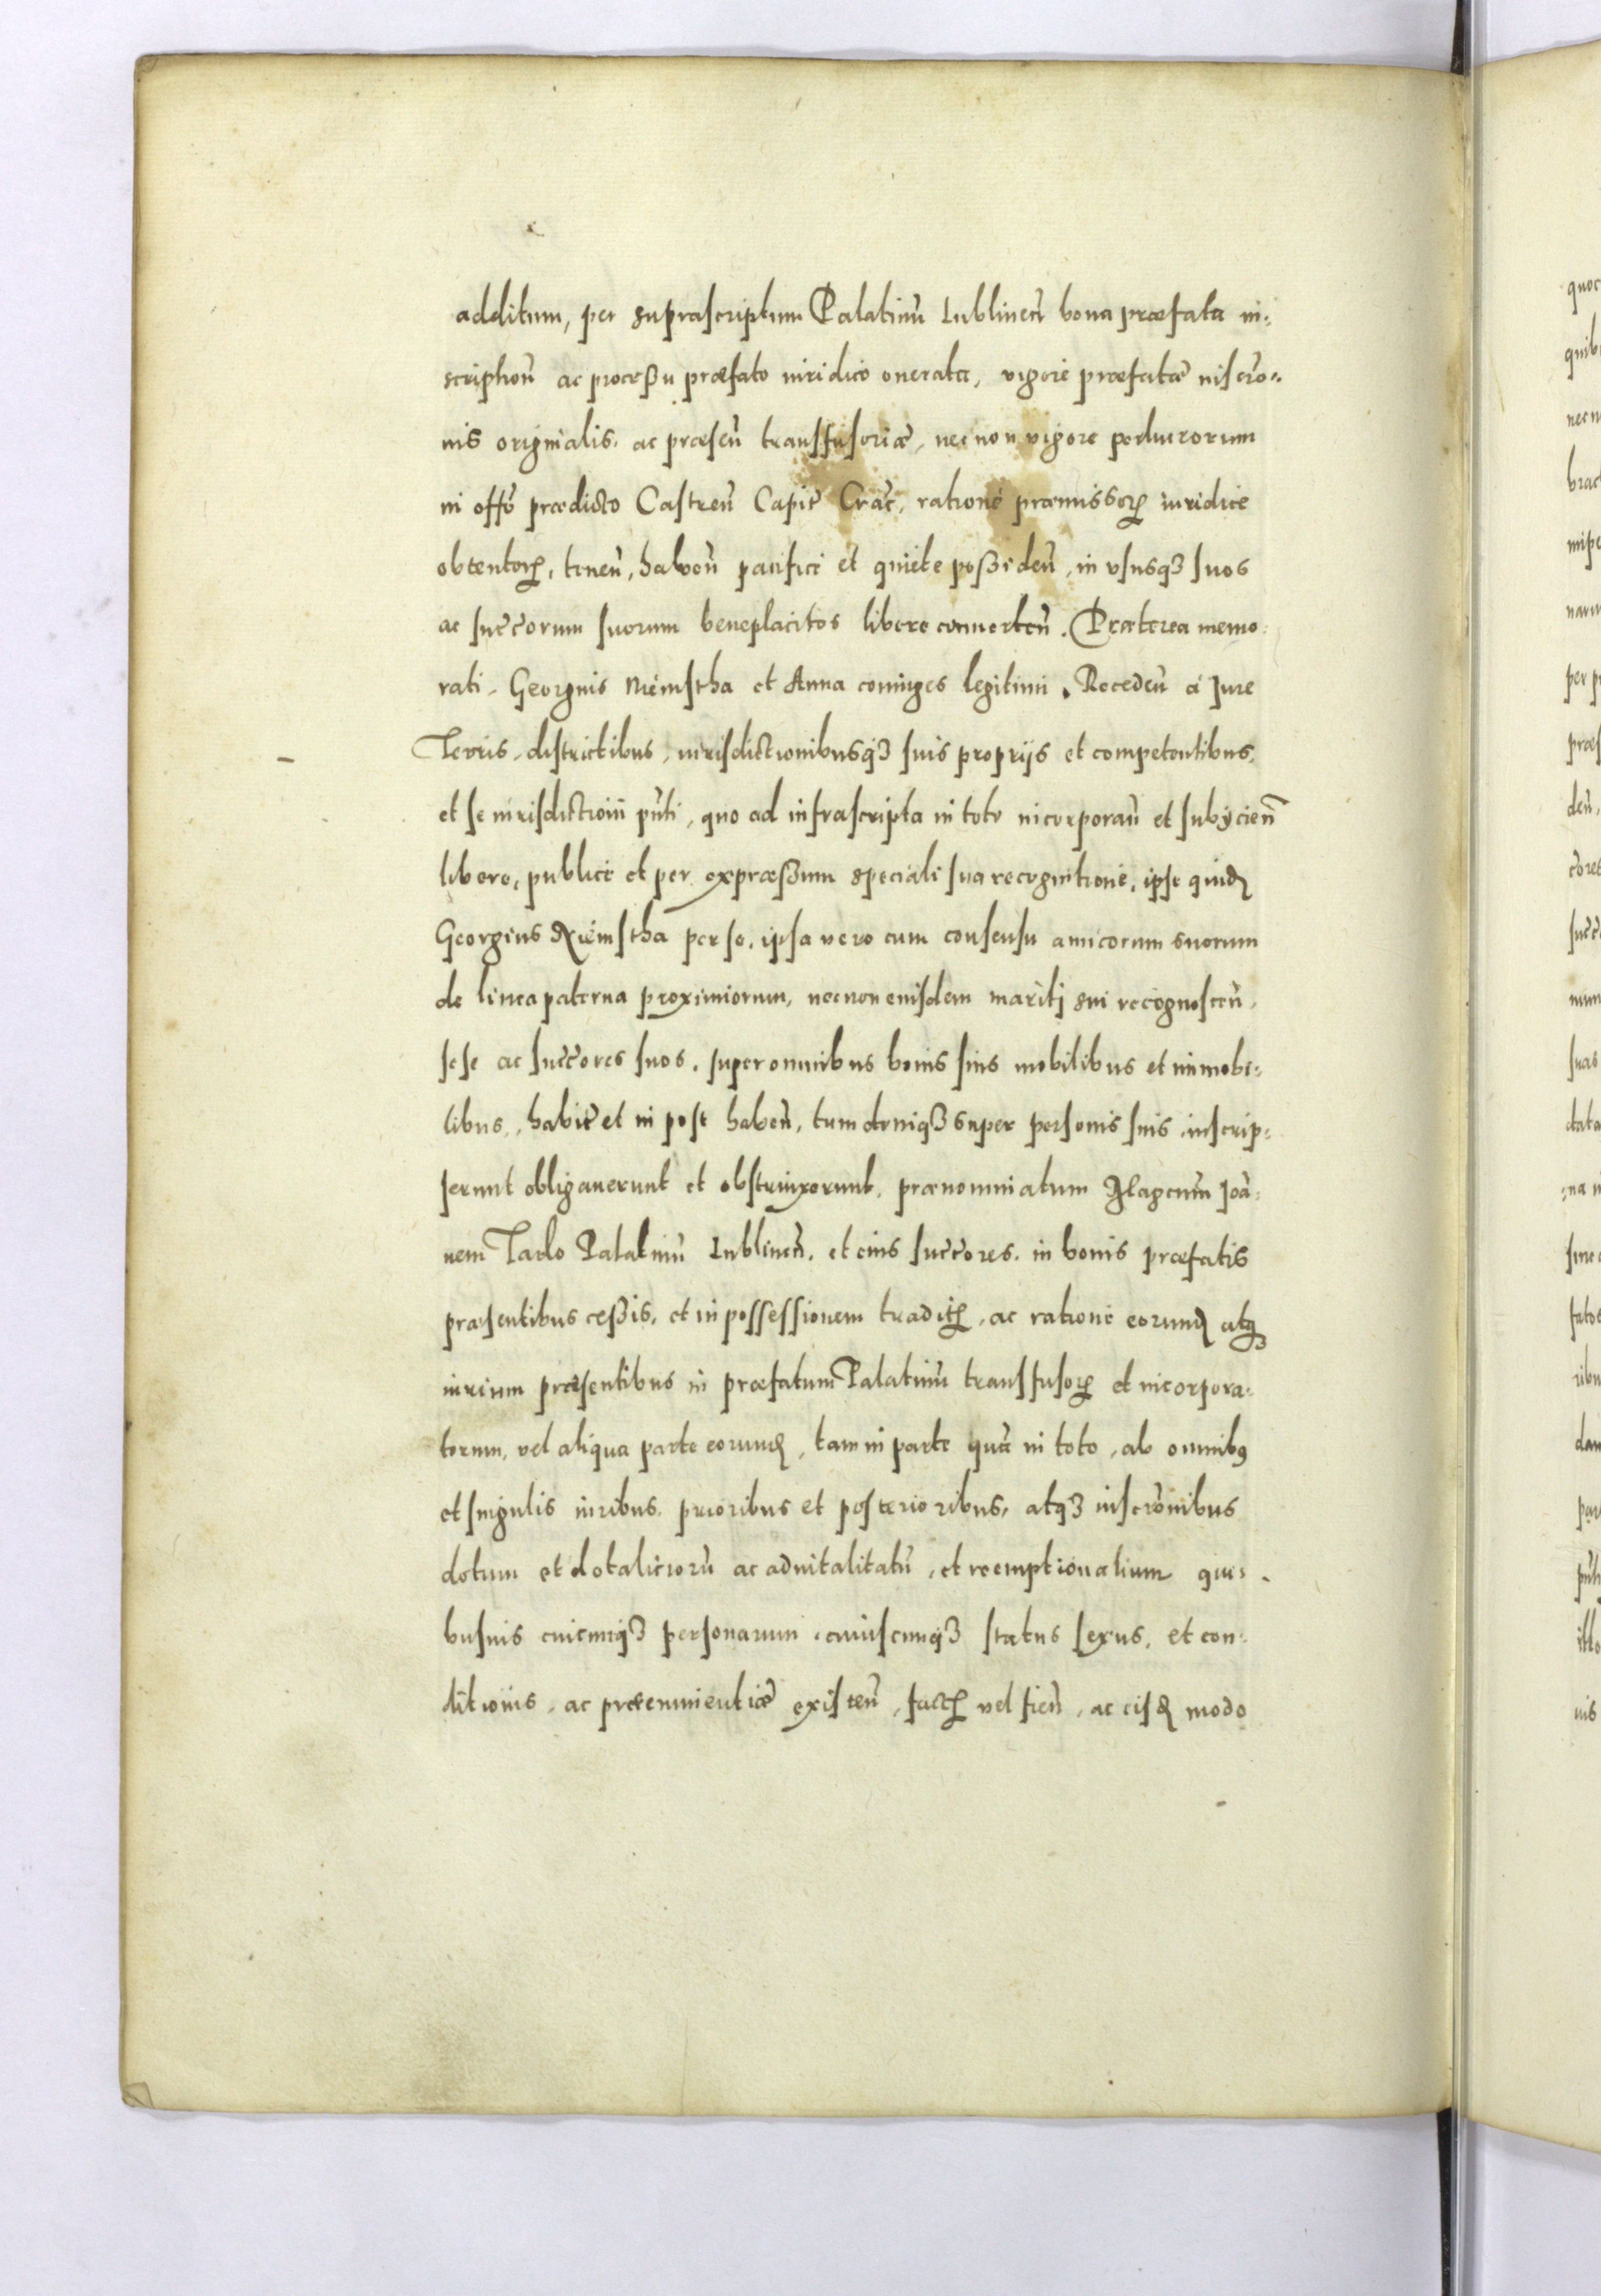 additum, per suprascriptum Palatinū Lublineñ bona præfata in⸗
scriptioñ ac proceßu præfato iuridico onerata, vigore præfatæ inscro⸗
nis originalis, ac præseñ transfusoriæ, necnon vigore perlucrorum
in offō prædicto Castreñ Capit̄ Crac̄, ratione præmissoꝝ iuridice
obtentoꝝ, teneñ, habeñ pacifice et quiete poßideñ, in vsusqꝫ suos
ac succ̄orum suorum beneplacitos libere conuerteñ. Præterea memo⸗
rati Georgius Niemstha et Anna coniuges legitimi. Recedeñ a Jure
Terris, districtibus, iurisdictionibusqꝫ suis proprijs et competentibus,
et se iurisdictioni pn̄ti, quo ad infrascripta in toto incorporañ et subijcieñ
libere, publice et per expræßum speciali sua recognitione, ipse quidē
Georgius Niemstha per se, ipsa vero cum consensu amicorum suorum
de linea paterna proximiorum, necnon eiusdem maritj sui recognosceñ,
sese ac succ̄ores suos, super omnibus bonis suis mobilibus et immobi⸗
libus, habit̄ et in post habeñ, tum deniqꝫ super personis suis inscrip⸗
serunt obligauerunt et obstrinxerunt, prænominatum Magcum̄ Joa⸗
nem Tarlo Palatinū Lublineñ, et eius succ̄ores, in bonis præfatis
præsentibus ceßis, et in possessionem traditꝭ, ac ratione eorund̄ atqꝫ
iurium præsentibus in præfatum Palatinū transfusoꝝ et incorpora⸗
torum, vel aliqua parte eorund̄, tam in parte quā in toto, ab omnibꝰ
et singulis iuribus, prioribus et posterioribus, atqꝫ inscrōnibus
dotum et dotaliciorū ac aduitalitatū, et reemptionalium qui⸗
busuis cuicunqꝫ personarum, cuiuscunqꝫ status sexus, et con⸗
ditionis, ac præeminentiæ existeñ, factꝭ vel fieñ, ac eisd̄ modo